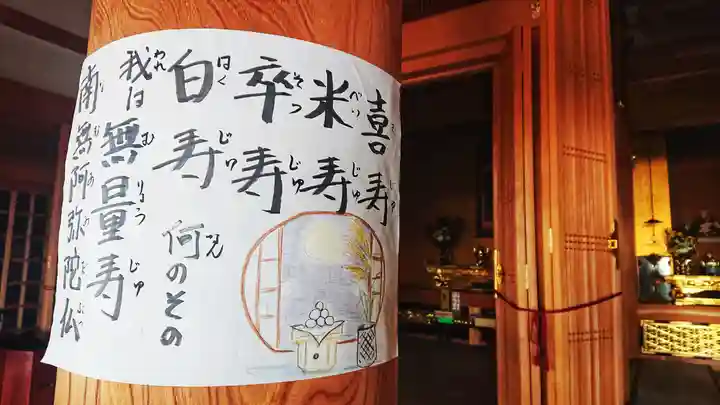 喜寿
米寿
卒寿
白寿 何のその
我は無量寿
南無阿弥陀仏